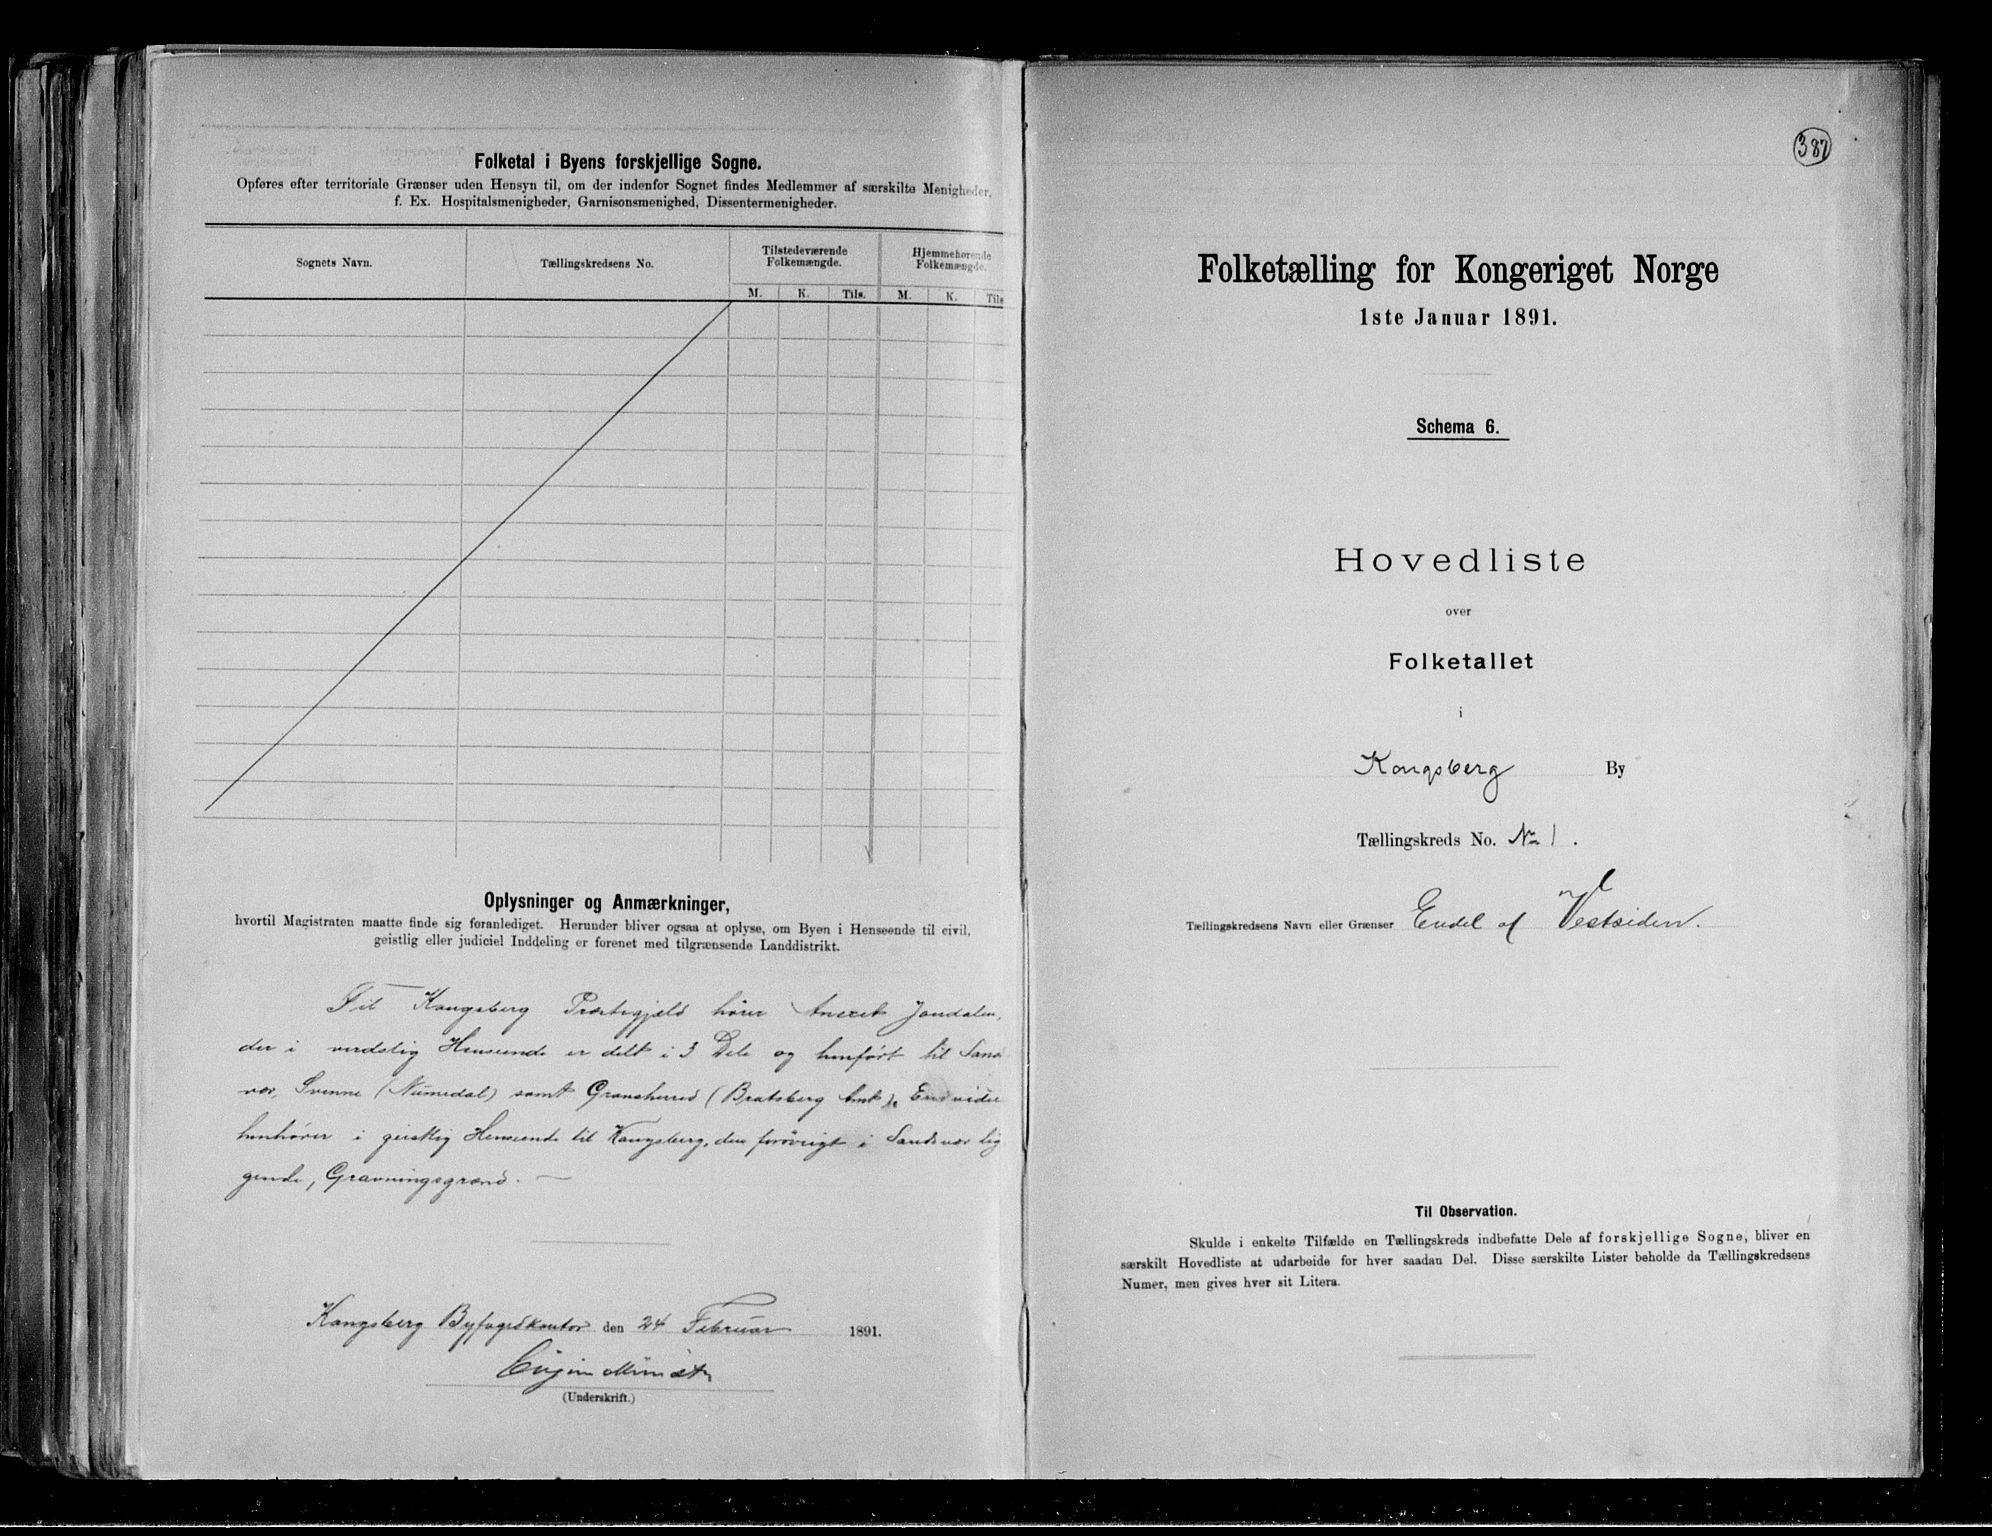 Folketal i Byens forskjellige Sogne.
Opføres efter territoriale Grænser uden Hensyn til, om der indenfor Sognet findes Medlemmer af særskilte Menigheder,
f. Ex. Hospitalsmenigheder, Garnisonsmenighed, Dissentermenigheder.
Sognets Navn.
Tællingskredsens No.
Tilstedeværende
Folkemængde.
Hjemmehørende
Folkemængde.
M. K. Tils. M. K. Tils
Oplysninger og Anmærkninger,
hvortil Magistraten maatte finde sig foranlediget. Herunder bliver ogsaa at oplyse, om Byen i Henseende til civil,
geistlig eller judiciel Inddeling er forenet med tilgrænsende Landdistrikt.
Til Kongsberg Præstegjeld hører Anexet Jondalen,
der i verdslig Henseende er delt i 3 Dele og henført til Sands
vær, Svenne (Numedal) samt Gransherred (Bratsberg Amt). Endvidere
henhører i geistlig Henseende til Kongsberg, den forøvrigt i Sandsvær lig
gende, Gravningsgrænd. —
Kongsberg Byfogedkontor den 24 Februar 1891.
(Underskrift.)
387
Folketælling for Kongeriget Norge
1ste Januar 1891.
Schema 6.
Hovedliste
over
Folketallet
i
Kongsberg By
Tællingskreds No. No 1.
Tællingskredsens Navn eller Grænser Endel af Vestsiden.
Til Observation.
Skulde i enkelte Tilfælde en Tællingskreds indbefatte Dele af forskjellige Sogne, bliver en
særskilt Hovedliste at udarbeide for hver saadan Del. Disse særskilte Lister beholde da Tællingskredsens
Numer, men gives hver sit Litera.